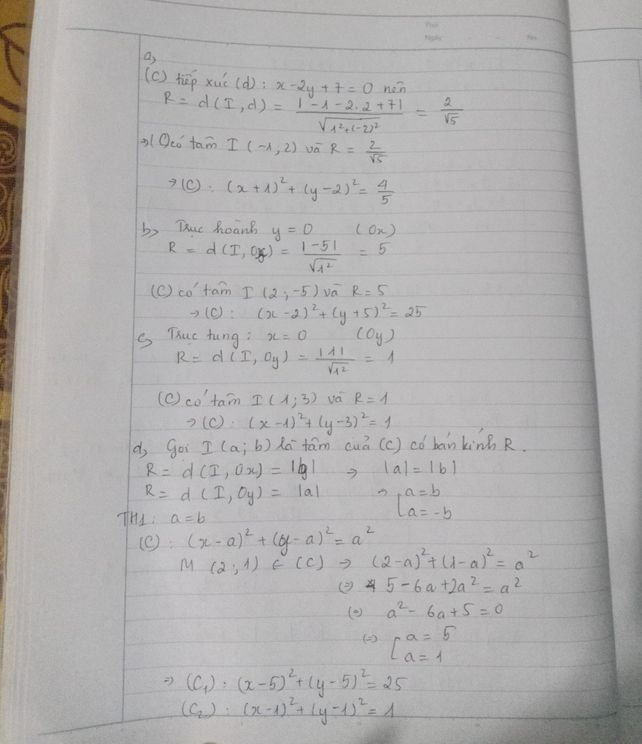 a,
(C) tiếp xúc (d): x - 2y + 7 = 0 nên
R = d(I, d) = |-1 - 2.2 + 7| / √(1² + (-2)²) = 2/√5
→ (C) có tâm I (-1, 2) và R = 2/√5
→ (C): (x + 1)² + (y - 2)² = 4/5
b, Trục hoành y = 0 (Ox)
R = d(I, Ox) = |-5| / √1² = 5
(C) có tâm I (2; -5) và R = 5
→ (C): (x - 2)² + (y + 5)² = 25
c, Trục tung: x = 0 (Oy)
R = d(I, Oy) = |1| / √1² = 1
(C) có tâm I (1; 3) và R = 1
→ (C): (x - 1)² + (y - 3)² = 1
d, Gọi I (a; b) là tâm cuả (C) có bán kính R.
R = d(I, Ox) = |b| → |a| = |b|
R = d(I, Oy) = |a| → [a = b
[a = -b
TH1: a = b
(C): (x - a)² + (y - a)² = a²
M (2; 1) ∈ (C) → (2 - a)² + (1 - a)² = a²
(=) 5 - 6a + 2a² = a²
(=) a² - 6a + 5 = 0
(=) [a = 5
[a = 1
→ (C₁): (x - 5)² + (y - 5)² = 25
(C₂): (x - 1)² + (y - 1)² = 1